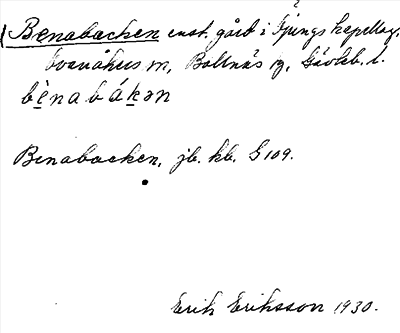 Benabacken enst. gård i Ljungs kapellag,
Svanåkers m, Bollnäs sg, Gävleb. l.
bènabákən
Benabacken, jb. kb. S 109.
Erik Eriksson 1930.